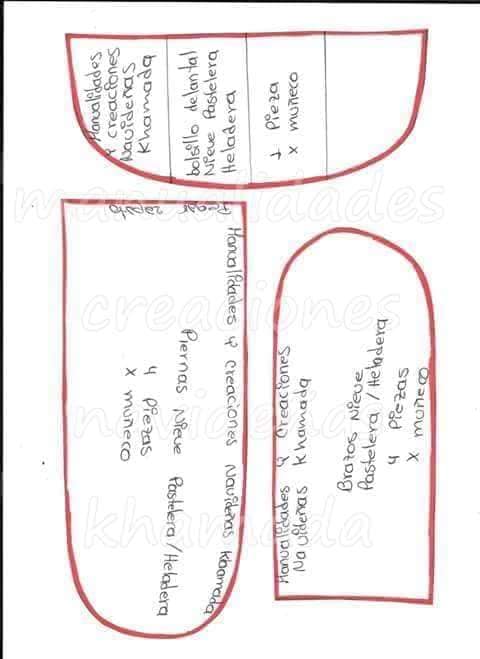 Manualidades
y creaciones
Navideñas
Khamada
bolsillo delantal
Nieve Pastelera
Heladera
1 Pieza
x muñeco
Pegar
zapato
Manualidades y Creaciones Navideñas Khamada
Piernas Nieve Pastelera/Heladera
4 Piezas
x muñeco
Manualidades y Creaciones
Navideñas Khamada
Brazos Nieve
Pastelera/Heladera
4 Piezas
x muñeco
manualidades
creaciones
navideña
khamada